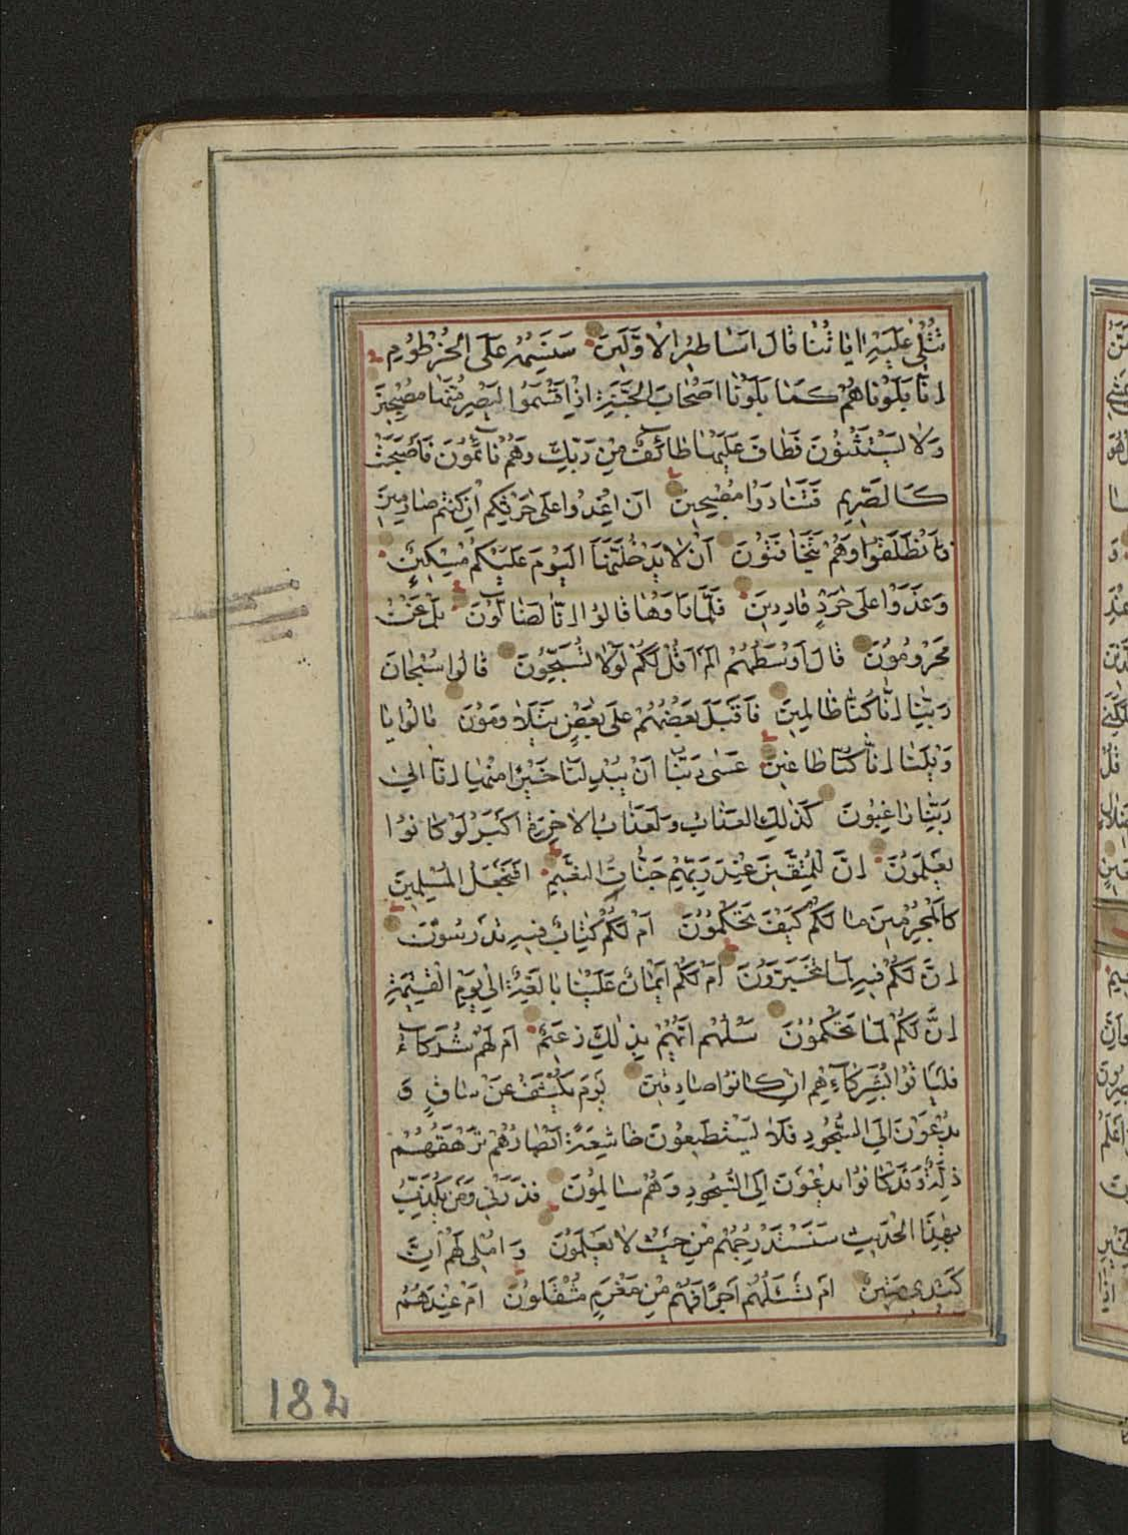 تُتْلٰى عَلَيْهِ اٰيَاتُنَا قَالَ اَسَاطِيْرُ الْاَوَّلِيْنَ سَنَسِمُهُ عَلَى الْخُرْطُوْمِ
اِنَّا بَلَوْنَاهُمْ كَمَا بَلَوْنَا اَصْحَابَ الْجَنَّةِ اِذْ اَقْسَمُوْا لَيَصْرِمُنَّهَا مُصْبِحِيْنَ
وَلَا يَسْتَثْنُوْنَ فَطَافَ عَلَيْهَا طَآئِفٌ مِنْ رَبِّكَ وَهُمْ نَآئِمُوْنَ فَاَصْبَحَتْ
كَالصَّرِيْمِ فَتَنَادَوْا مُصْبِحِيْنَ اَنِ اغْدُوْا عَلٰى حَرْثِكُمْ اِنْ كُنْتُمْ صَارِمِيْنَ
فَانْطَلَقُوْا وَهُمْ يَتَخَافَتُوْنَ اَنْ لَا يَدْخُلَنَّهَا الْيَوْمَ عَلَيْكُمْ مِسْكِيْنٌ
وَغَدَوْا عَلٰى حَرْدٍ قَادِرِيْنَ فَلَمَّا رَاَوْهَا قَالُوْا اِنَّا لَضَآلُّوْنَ بَلْ نَحْنُ
مَحْرُوْمُوْنَ قَالَ اَوْسَطُهُمْ اَلَمْ اَقُلْ لَكُمْ لَوْلَا تُسَبِّحُوْنَ قَالُوْا سُبْحَانَ
رَبِّنَا اِنَّا كُنَّا ظَالِمِيْنَ فَاَقْبَلَ بَعْضُهُمْ عَلٰى بَعْضٍ يَتَلَاوَمُوْنَ قَالُوْا يَا
وَيْلَنَا اِنَّا كُنَّا طَاغِيْنَ عَسٰى رَبُّنَا اَنْ يُبْدِلَنَا خَيْرًا مِنْهَا اِنَّا اِلٰى
رَبِّنَا رَاغِبُوْنَ كَذٰلِكَ الْعَذَابُ وَلَعَذَابُ الْاٰخِرَةِ اَكْبَرُ لَوْ كَانُوْا
يَعْلَمُوْنَ اِنَّ لِلْمُتَّقِيْنَ عِنْدَ رَبِّهِمْ جَنَّاتِ النَّعِيْمِ اَفَنَجْعَلُ الْمُسْلِمِيْنَ
كَالْمُجْرِمِيْنَ مَا لَكُمْ كَيْفَ تَحْكُمُوْنَ اَمْ لَكُمْ كِتَابٌ فِيْهِ تَدْرُسُوْنَ
اِنَّ لَكُمْ فِيْهِ لَمَا تَخَيَّرُوْنَ اَمْ لَكُمْ اَيْمَانٌ عَلَيْنَا بَالِغَةٌ اِلٰى يَوْمِ الْقِيٰمَةِ
اِنَّ لَكُمْ لَمَا تَحْكُمُوْنَ سَلْهُمْ اَيُّهُمْ بِذٰلِكَ زَعِيْمٌ اَمْ لَهُمْ شُرَكَآءُ
فَلْيَاْتُوْا بِشُرَكَآئِهِمْ اِنْ كَانُوْا صَادِقِيْنَ يَوْمَ يُكْشَفُ عَنْ سَاقٍ وَ
يُدْعَوْنَ اِلَى السُّجُوْدِ فَلَا يَسْتَطِيْعُوْنَ خَاشِعَةً اَبْصَارُهُمْ تَرْهَقُهُمْ
ذِلَّةٌ وَقَدْ كَانُوْا يُدْعَوْنَ اِلَى السُّجُوْدِ وَهُمْ سَالِمُوْنَ فَذَرْنِيْ وَمَنْ يُكَذِّبُ
بِهٰذَا الْحَدِيْثِ سَنَسْتَدْرِجُهُمْ مِنْ حَيْثُ لَا يَعْلَمُوْنَ وَاُمْلِيْ لَهُمْ اِنَّ
كَيْدِيْ مَتِيْنٌ اَمْ تَسْئَلُهُمْ اَجْرًا فَهُمْ مِنْ مَغْرَمٍ مُثْقَلُوْنَ اَمْ عِنْدَهُمُ
182